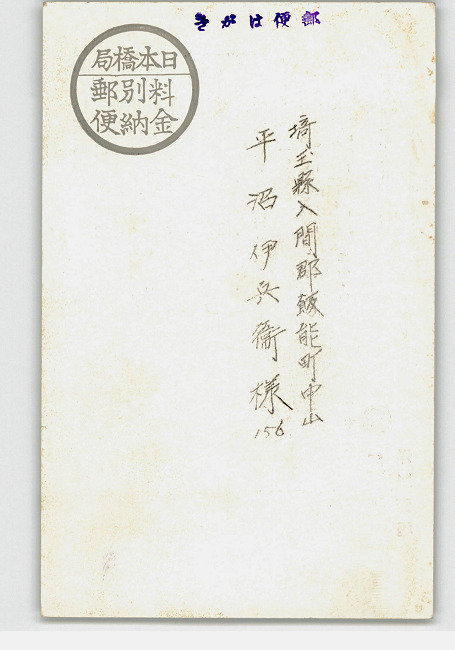 郵便はがき
日本橋局
料金別納郵便
埼玉縣入間郡飯能町中山
平沼伊兵衞様
156